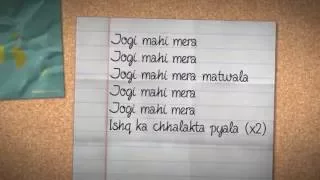 Jogi mahi mera
Jogi mahi mera
Jogi mahi mera matwala
Jogi mahi mera
Jogi mahi mera
Ishq ka chhalakta pyala (x2)